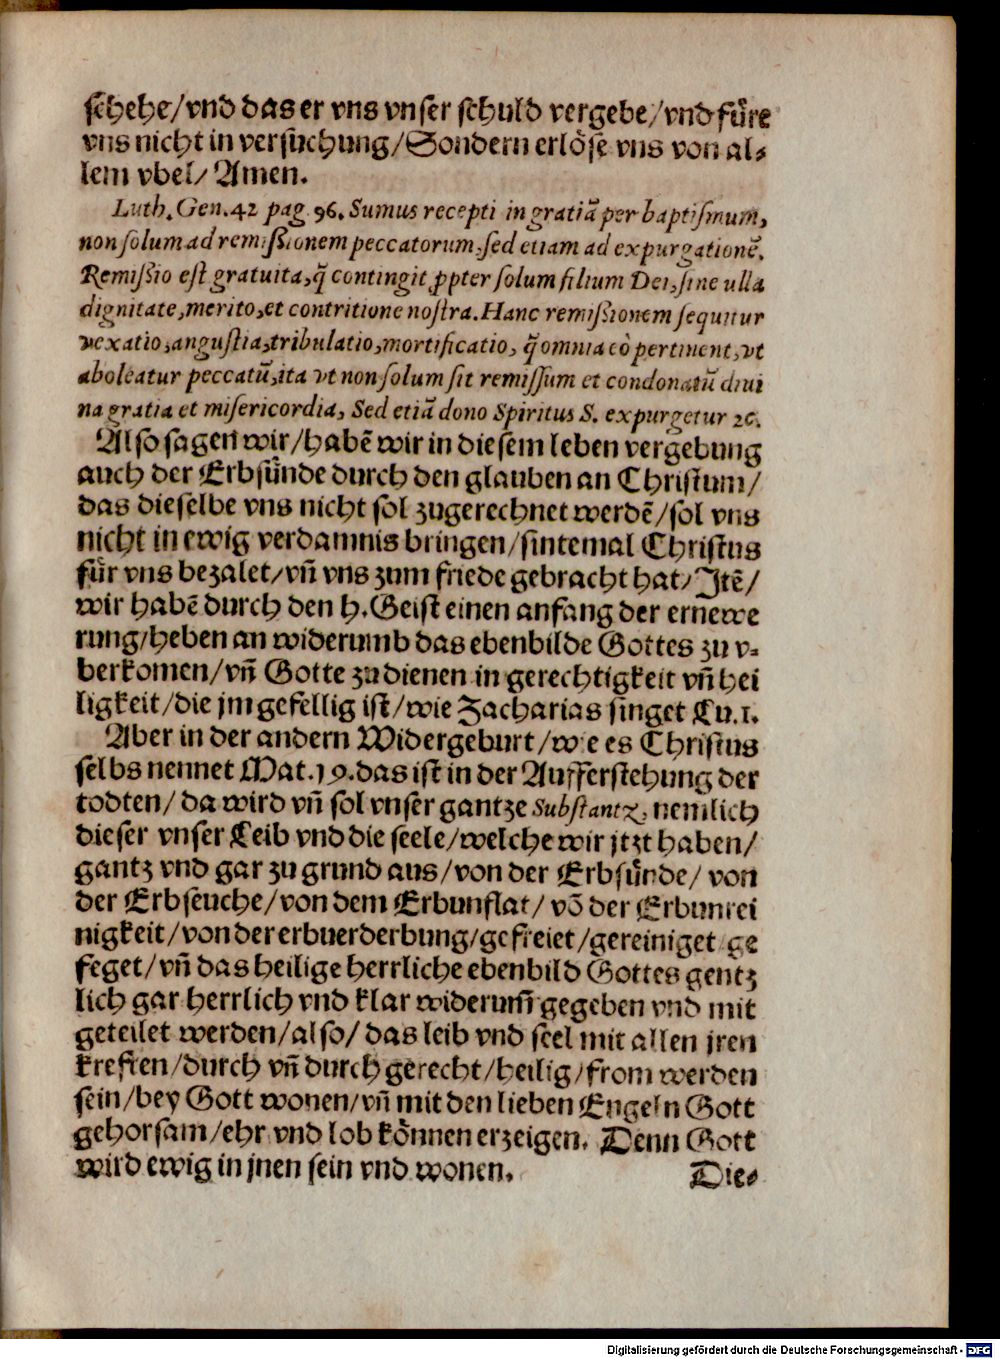 schehe/vnd das er vns vnser schuld vergebe/vnd fu̍re
vns nicht in versuchung/Sondern erlo̍se vns von al⸗
lem vbel/ Amen.
Luth. Gen. 42 pag. 96. Sumus recepti in gratiã per baptismum,
non solum ad remißionem peccatorum, sed etiam ad expurgationẽ.
Remißio est gratuita, q̃ contingit ꝓpter solum filium Dei, sine ulla
dignitate, merito, et contritione nostra. Hanc remißionem sequitur
vexatio, angustia, tribulatio, mortificatio, q̃ omnia eò pertinent, vt
aboleatur peccatũ, ita vt non solum sit remissum et condonatũ diui
na gratia et misericordia, Sed etiã dono Spiritus S. expurgetur ꝛc.
Also sagen wir/habẽ wir in diesem leben vergebung
auch der Erbsu̍nde durch den glauben an Christum/
das dieselbe vns nicht sol zugerechnet werdẽ/sol vns
nicht in ewig verdamnis bringen/sintemal Christus
fu̍r vns bezalet/vñ vns zum friede gebracht hat/Jtẽ/
wir habẽ durch den h. Geist einen anfang der ernewe
rung/heben an widerumb das ebenbilde Gottes zu v⸗
berkomen/vñ Gotte zu dienen in gerechtigkeit vñ hei
ligkeit/die jm gefellig ist/wie Zacharias singet Lu. 1.
Aber in der andern Widergeburt/wie es Christus
selbs nennet Mat. 19. das ist in der Aufferstehung der
todten/ da wird vñ sol vnser gantze Substantz, nemlich
dieser vnser Leib vnd die seele/welche wir jtzt haben/
gantz vnd gar zu grund aus/von der Erbsu̍nde/ von
der Erbseuche/von dem Erbunflat/ võ der Erbunrei
nigkeit/von der erbuerderbung/gefreiet/gereiniget ge
feget/vñ das heilige herrliche ebenbild Gottes gentz
lich gar herrlich vnd klar widerum̃ gegeben vnd mit
geteilet werden/also/ das leib vnd seel mit allen jren
krefften/durch vñ durch gerecht/heilig/from werden
sein/bey Gott wonen/vñ mit den lieben Engeln Gott
gehorsam/ehr vnd lob ko̍nnen erzeigen. Denn Gott
wird ewig in jnen sein vnd wonen.
Die⸗
Digitalisierung gefördert durch die Deutsche Forschungsgemeinschaft - DFG